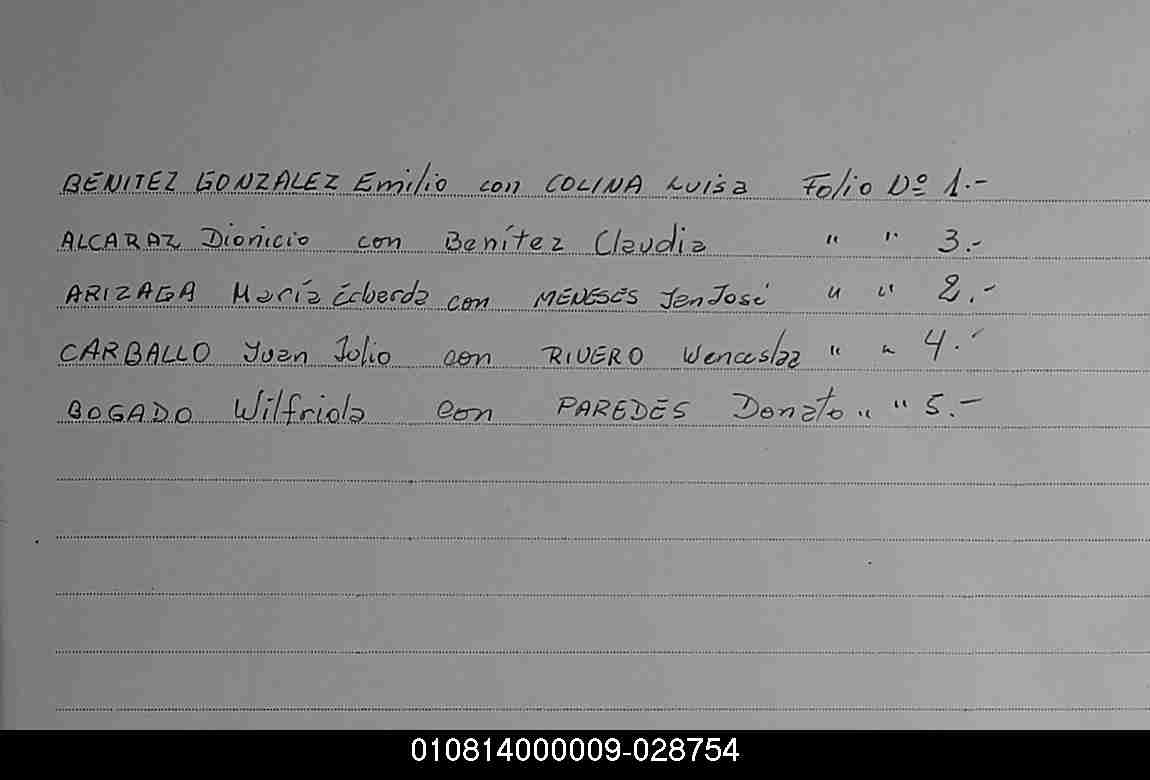 BENITEZ GONZALEZ Emilio con COLINA Luisa Folio Nº 1.-
ALCARAZ Dionicio con Benítez Claudia " " 3.-
ARIZAGA María con MENESES José " " 2.-
CARBALLO Juan Julio con RIVERO Wenceslaa " " 4.-
BOGADO Wilfrida con PAREDES Donato " " 5.-
010814000009-028754